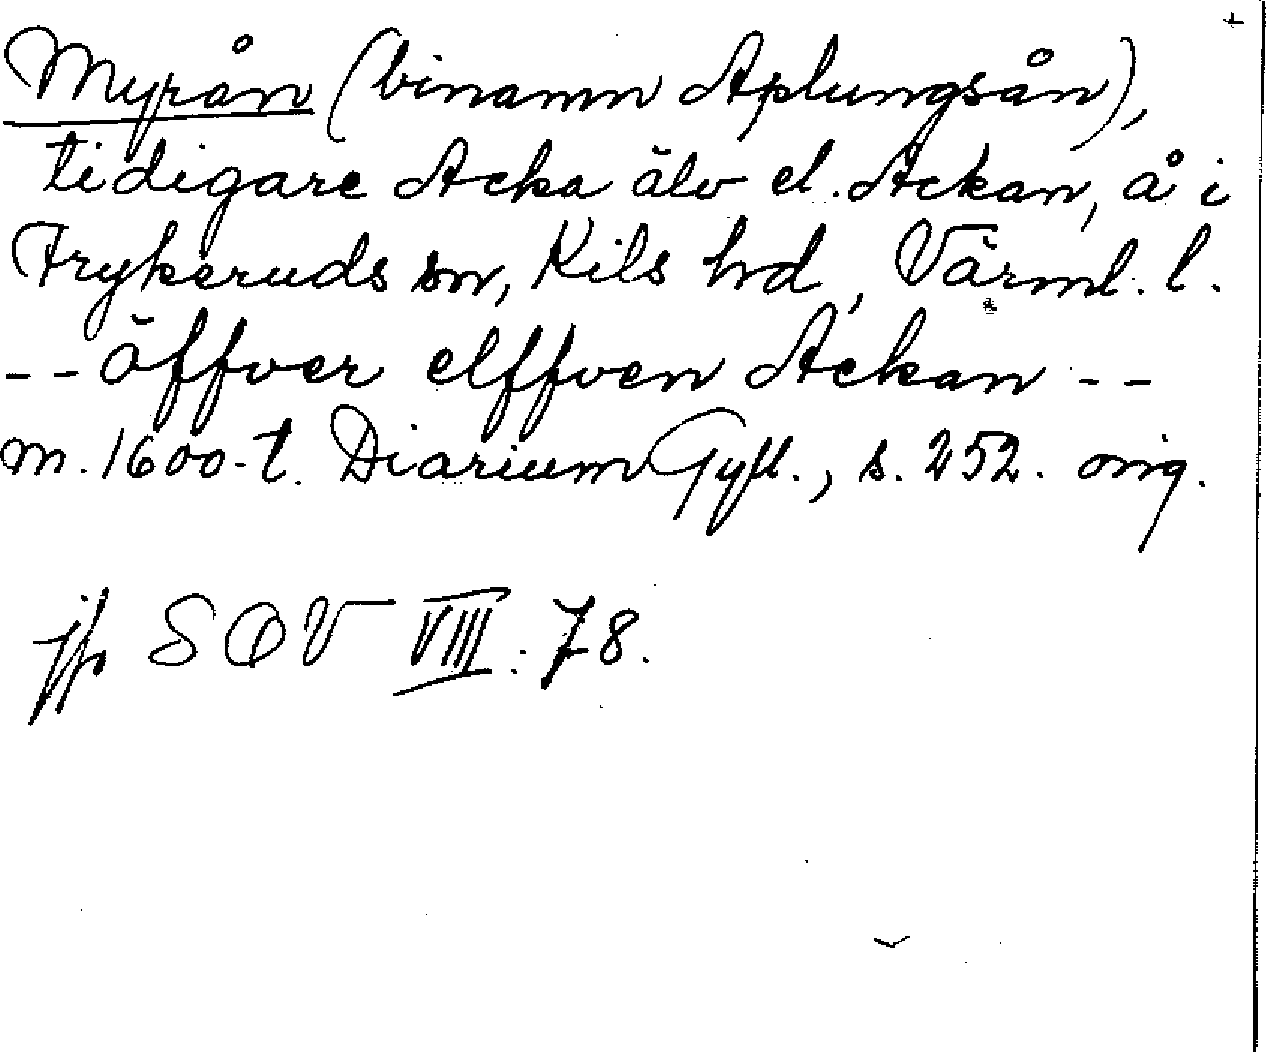 +
Myrån (binamn Aplungsån),
tidigare Acka älv el. Ackan, å i
Frykeruds sn, Kils hd, Värml. l.
-- öffver elffven Ackan --
m. 1600-t. Diarium Gyll., s. 252. orig.
jfr SOV VIII: 78.